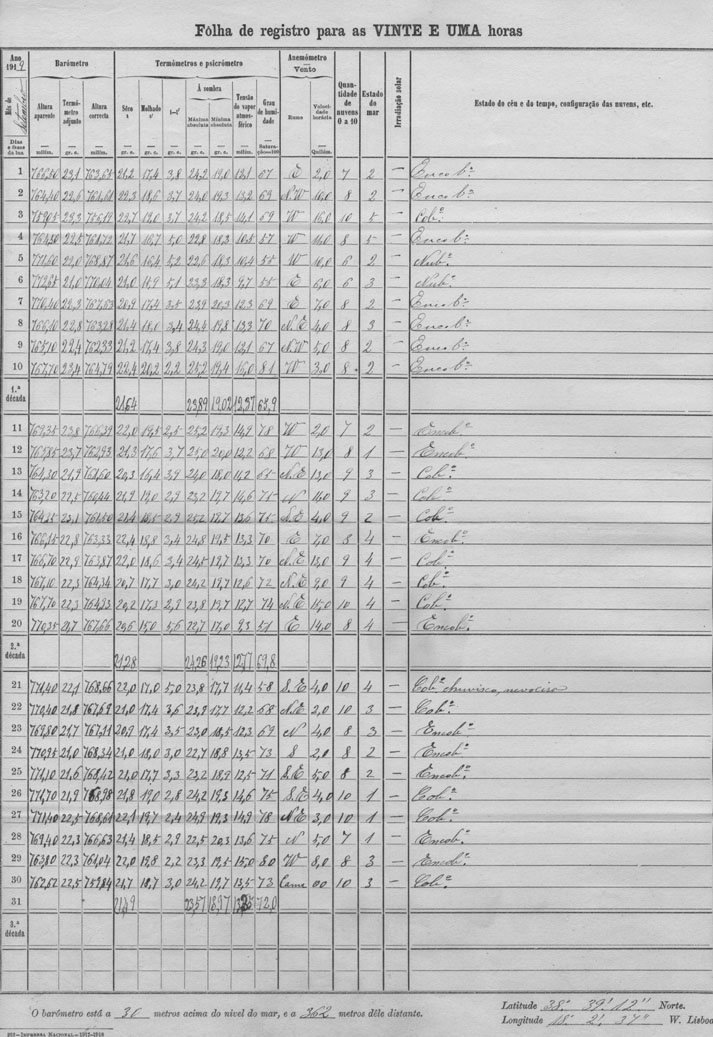 Fôlha de registro para as VINTE E UMA horas
Ano 1919 Barómetro Termómetros e psicrómetro Anemómetro Vento Quantidade de nuvens 0 a 10 Estado do mar Irradiação solar Estado do céu e do tempo, configuração das nuvens, etc.
Mês de
Dias e fases da lua Altura aparente Termómetro adjunto Altura correcta Sêco t Molhado t' t—t' Á sombra Máxima absoluta Mínima absoluta Tensão do vapor atmosférico Grau de humidade Rumo Velocidade horária
millím. gr. c. millím. gr. c. gr. c. gr. c. gr. c. gr. c. millím. Saturação=100 Quilóm.
1 23,1 21,2 17,4 3,8 24,2 19,0 12,1 67 E 2,0 7 2 — Encobº
2 764,40 22,6 22,3 18,6 3,7 24,0 19,3 13,2 69 N.W 10,0 8 2 — Encobº
3 22,3 22,7 19,0 3,7 24,2 18,5 14,1 69 W 10 — Cobº
4 22,5 21,7 16,7 5,0 22,8 18,3 57 W 8 5 — Encobº
5 771,60 22,0 768,87 21,6 16,4 5,2 22,6 18,3 10,4 55 W 10,0 6 2 — Nubº
6 21,0 21,0 15,9 5,1 23,3 18,3 9,7 55 E 6,0 6 3 — Nubº
7 770,40 22,3 767,63 20,9 17,4 3,5 23,9 20,3 12,3 69 E 7,0 8 2 — Encobº
8 766,10 22,8 763,28 21,4 18,0 3,4 24,4 19,8 13,3 70 N.E 4,0 8 3 — Encobº
9 765,10 22,4 762,33 21,2 17,4 3,8 24,3 19,0 12,1 67 N.W 5,0 8 2 — Encobº
10 767,70 23,4 764,79 22,4 20,2 2,2 25,2 19,4 16,0 81 W 3,0 8 2 — Encobº
1.ª década 21,64 23,89 19,02 12,37 65,9
11 769,35 23,8 766,39 22,0 19,5 2,5 25,2 19,3 14,9 78 W 2,0 7 2 — Encobº
12 765,85 23,7 762,93 21,3 17,6 3,7 25,0 20,0 12,2 68 W 13,0 8 1 — Encobº
13 764,30 21,9 20,3 16,4 3,9 24,0 18,0 11,2 N.E 13,0 9 3 — Cobº
14 763,20 22,5 760,44 21,9 19,0 2,9 23,2 19,7 14,6 75 N 9 3 — Cobº
15 23,1 21,4 18,5 2,9 25,2 19,7 13,6 75 S.E 4,0 9 2 — Cobº
16 22,8 763,33 22,4 18,8 3,4 24,8 19,5 13,3 70 E 7,0 8 4 — Encobº
17 766,70 22,9 763,87 22,0 18,6 3,4 24,5 19,7 13,3 70 N.E 13,0 9 4 — Cobº
18 767,10 22,3 764,34 20,7 17,7 3,0 24,2 19,7 12,6 72 N.E 9,0 9 4 — Cobº
19 767,70 22,3 764,93 20,2 17,3 2,9 23,8 19,7 12,7 74 N.E 15,0 10 4 — Cobº
20 770,35 21,7 767,66 20,6 15,0 5,6 22,7 17,0 9,3 51 E 14,0 8 4 — Encobº
2.ª década 21,28 24,26 19,23 12,77 69,8
21 771,40 22,1 768,66 22,0 17,0 5,0 23,8 17,7 11,4 58 S.E 4,0 10 4 — Cobº chuvisco, nevoeiro
22 770,40 21,8 767,69 21,0 17,4 3,6 23,9 17,7 12,2 68 N.E 2,0 10 3 — Cobº
23 769,80 21,7 767,11 20,9 17,4 3,5 23,0 18,5 12,3 69 N 4,0 8 3 — Encobº
24 770,95 21,0 768,34 21,0 18,0 3,0 22,7 18,8 13,5 73 S 2,0 8 2 — Encobº
25 771,10 21,6 768,42 21,0 17,7 3,3 23,2 18,9 12,5 71 S.E 5,0 8 2 — Encobº
26 771,70 21,9 768,98 21,8 19,0 2,8 24,2 19,3 14,6 75 S.E 4,0 10 1 — Cobº
27 771,40 22,5 768,61 22,1 19,7 2,4 24,9 19,3 14,9 78 N.E 3,0 10 1 — Cobº
28 769,40 22,3 766,63 21,4 18,5 2,9 22,5 20,3 13,6 75 N 5,0 7 1 — Encobº
29 763,80 22,3 761,04 22,0 19,8 2,2 23,3 19,5 15,0 80 W 8,0 8 3 — Encobº
30 762,62 22,5 759,84 21,7 18,7 3,0 24,2 19,7 13,5 73 00 10 3 — Cobº
31 23,57 18,97 72,0
3.ª década
O barómetro está a 30 metros acima do nível do mar, e a 362 metros dêle distante.
Latitude 38º 39' 12" Norte.
Longitude 18º 2' 37" W. Lisboa
Imprensa Nacional